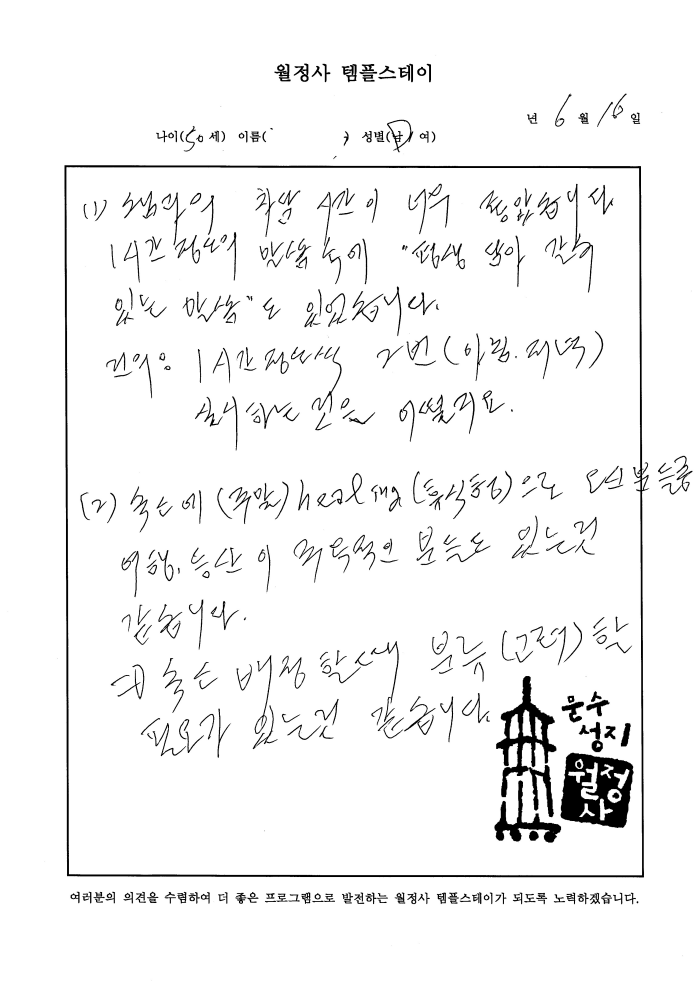 월정사 템플스테이
년 6 월 16 일
나이(50 세) 이름( ) 성별(남/여)
(1) 스님과의 차담 시간이 너무 좋았습니다
1시간 정도의 말씀 속에 "평생 남아 간직
있는 말씀"도 있었습니다.
건의 1시간 정도씩 2번(아침.저녁)
실시하는 것은 어떨지요.
(2) 숙소에 (주말) healing (휴식형)으로 오신 분들중
여행, 등산이 목적인 분들도 있는것
같습니다.
⇒ 숙소 배정 할때 분류(고려)할
필요가 있는것 같습니다.
문수
성지
월정
사
여러분의 의견을 수렴하여 더 좋은 프로그램으로 발전하는 월정사 템플스테이가 되도록 노력하겠습니다.